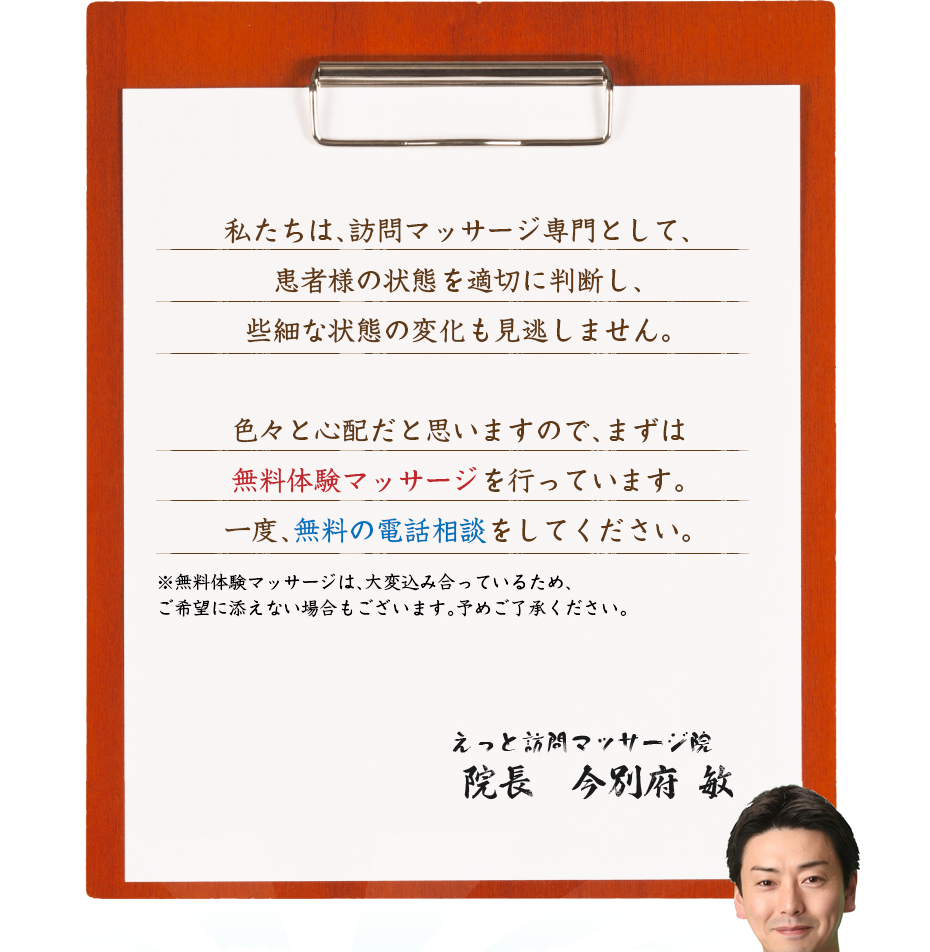 私たちは、訪問マッサージ専門として、
患者様の状態を適切に判断し、
些細な状態の変化も見逃しません。
色々と心配だと思いますので、まずは
無料体験マッサージを行っています。
一度、無料の電話相談をしてください。
※無料体験マッサージは、大変込み合っているため、
ご希望に添えない場合もございます。予めご了承ください。
えっと訪問マッサージ院
院長 今別府 敏